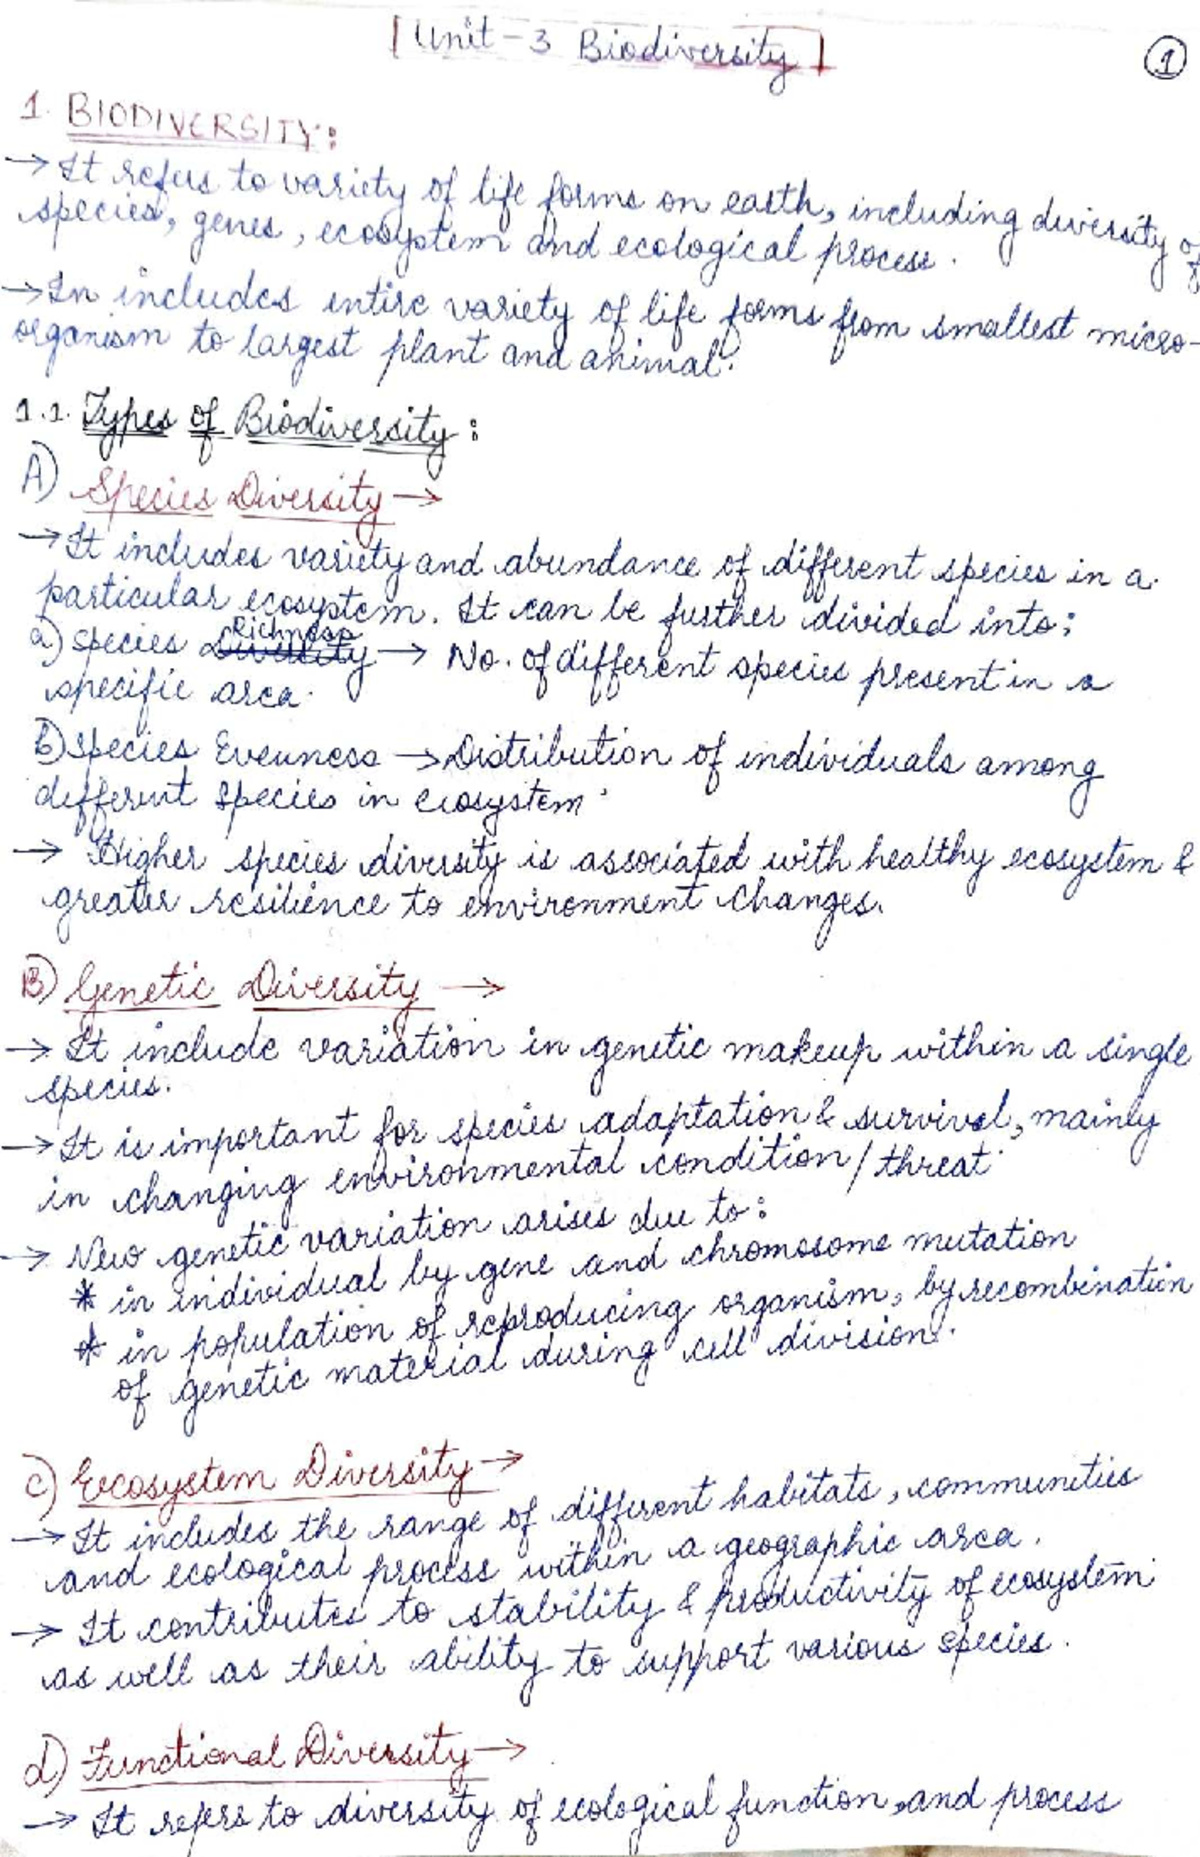 Unit-3 Biodiversity
1
1. BIODIVERSITY:
→ It refers to variety of life forms on earth, including diversity of
species, genes, ecosystem and ecological process.
→ In includes entire variety of life forms from smallest micro-
organism to largest plant and animal.
1.1. Types of Biodiversity:
A) Species Diversity →
→ It includes variety and abundance of different species in a
particular ecosystem. It can be further divided into:
a) species Richness → No. of different species present in a
specific area.
b) species Evenness → Distribution of individuals among
different species in ecosystem.
→ Higher species diversity is associated with healthy ecosystem &
greater resilience to environment changes.
B) Genetic Diversity →
→ It include variation in genetic makeup within a single
species.
→ It is important for species adaptation & survival, mainly
in changing environmental condition/threat.
→ New genetic variation arises due to:
* in individual by gene and chromosome mutation
* in population of reproducing organism, by recombination
of genetic material during cell division.
c) Ecosystem Diversity →
→ It includes the range of different habitats, communities
and ecological process within a geographic area.
→ It contributes to stability & productivity of ecosystem
as well as their ability to support various species.
d) Functional Diversity →
→ It refers to diversity of ecological function, and process